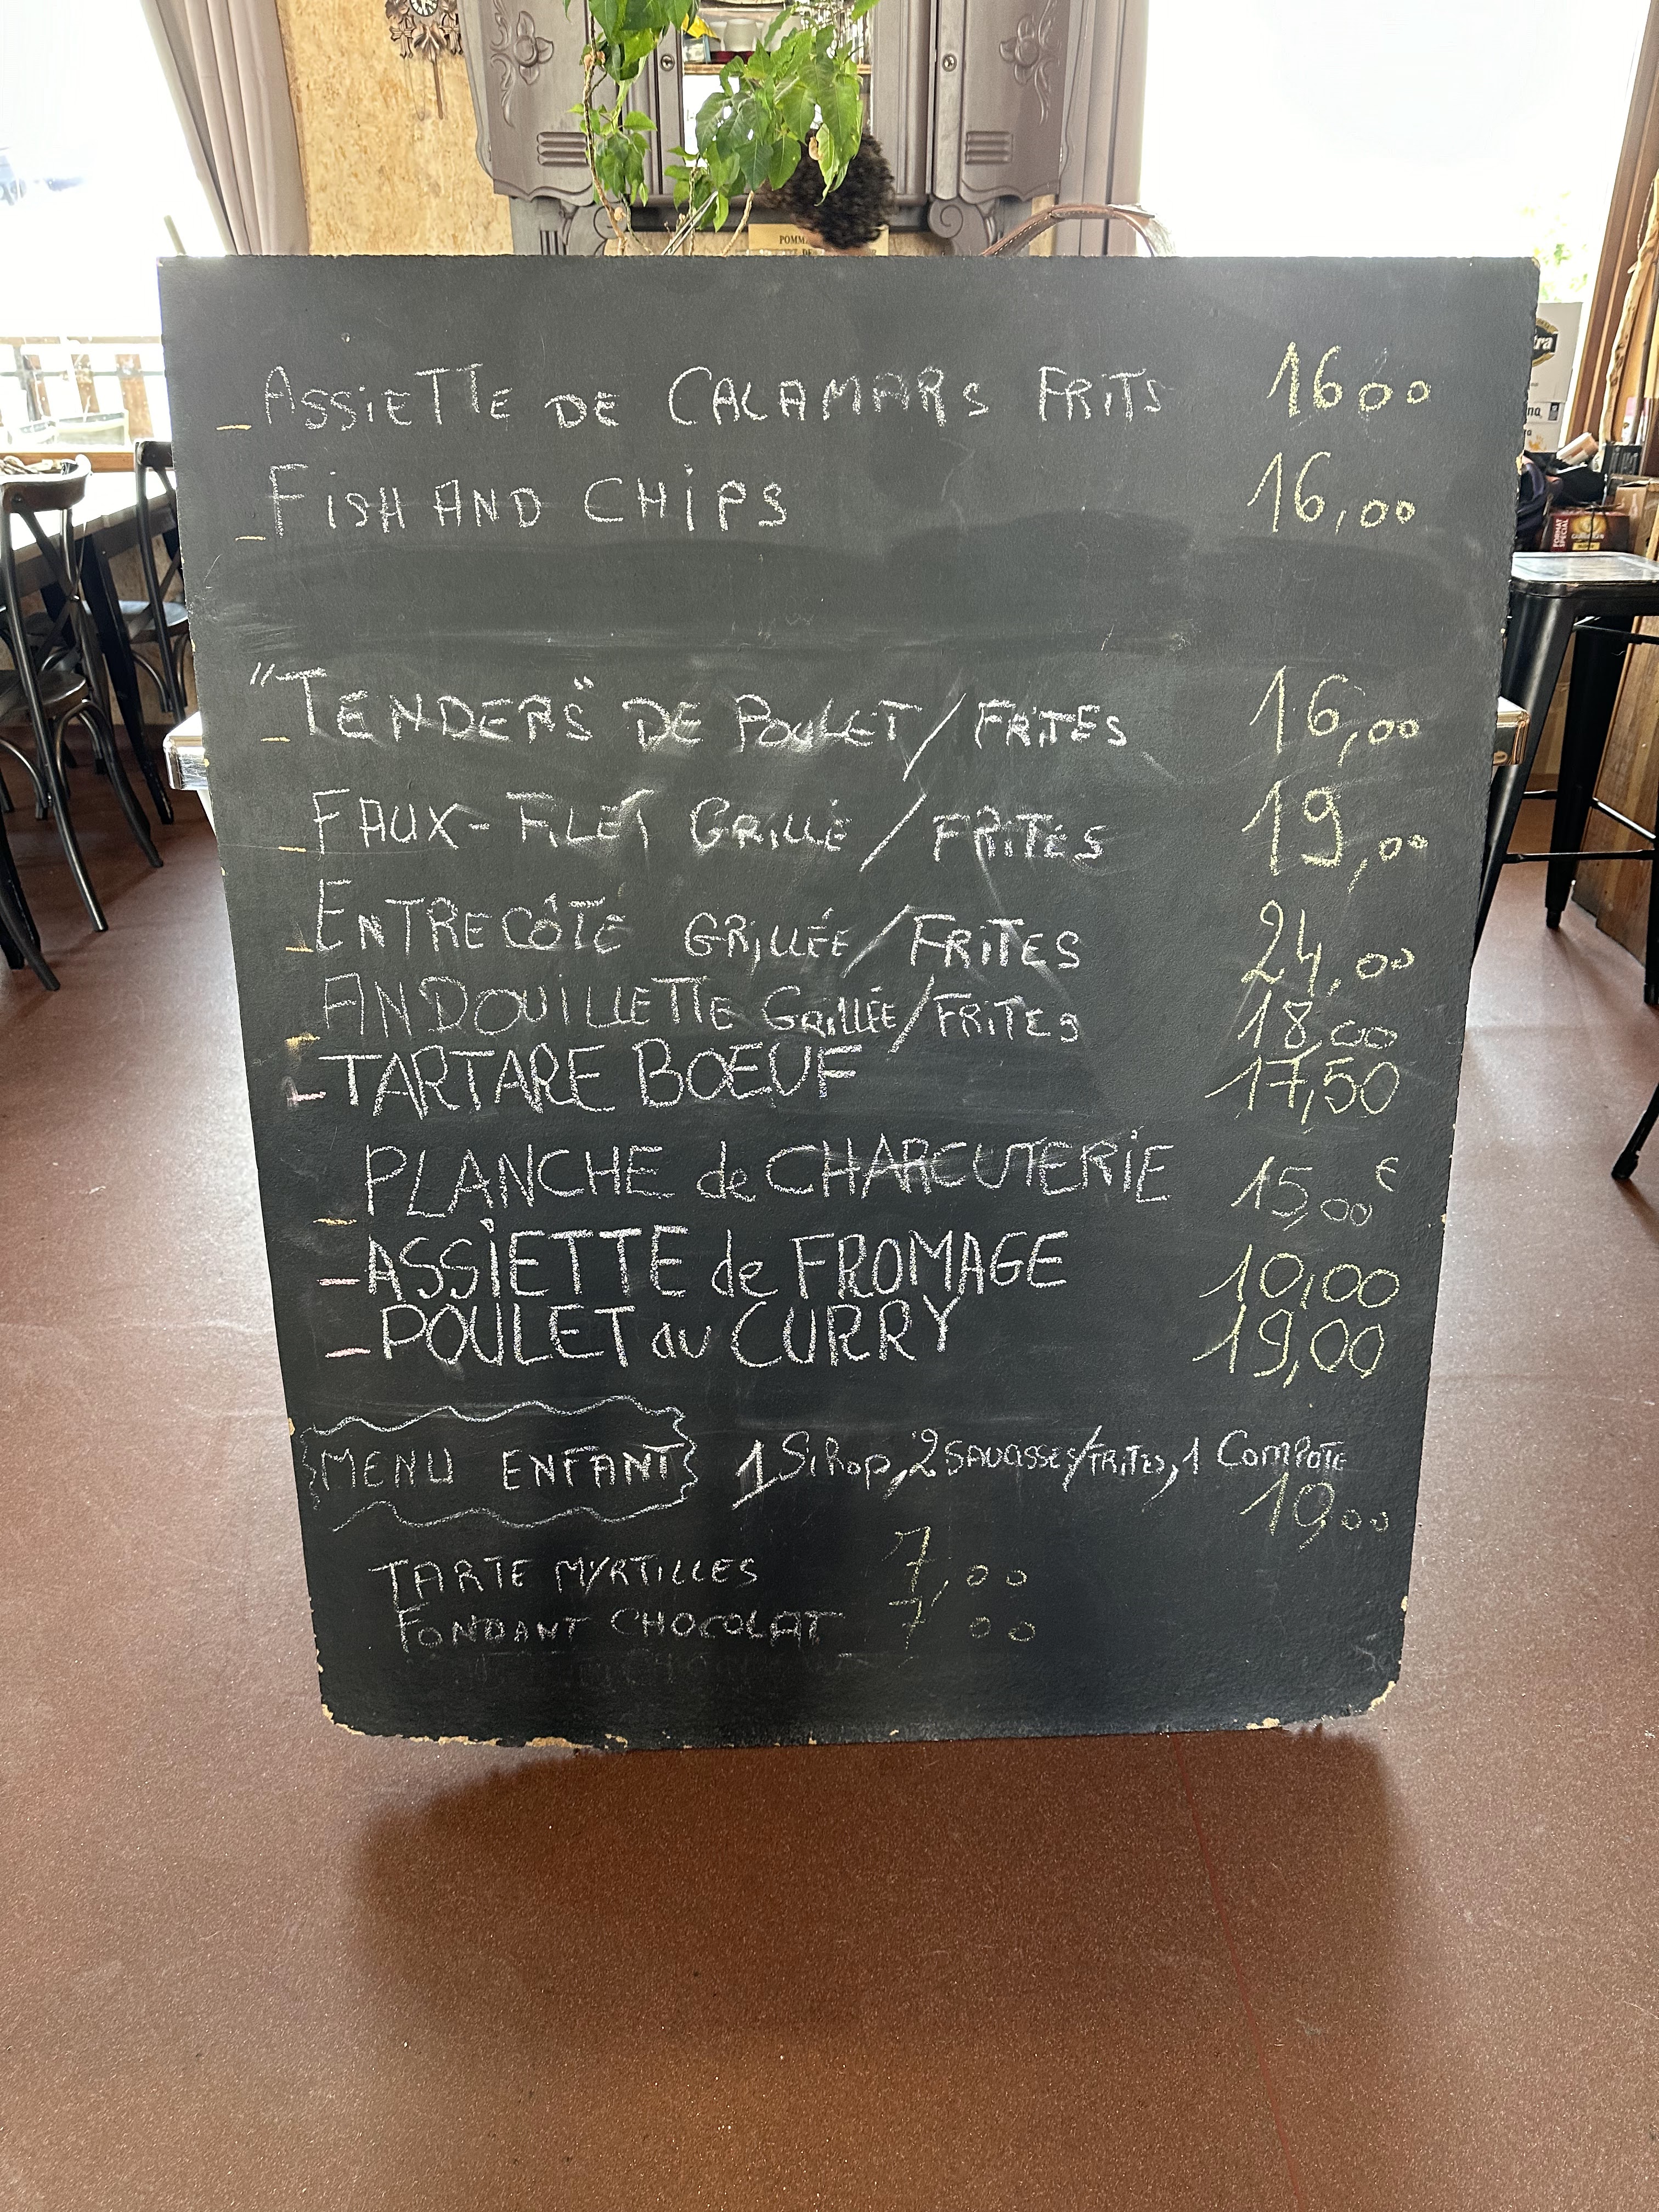 POMM
DE
_ASSIETTE DE CALAMARS FRITS 16 00
_FISH AND CHIPS 16,00
_"TENDERS" DE POULET/FRITES 16,00
_FAUX-FILET GRILLÉ/FRITES 19,00
_ENTRECÔTE GRILLÉE/FRITES 24,00
_ANDOUILLETTE GRILLÉE/FRITES 18,00
_TARTARE BŒUF 17,50
_PLANCHE de CHARCUTERIE 15,00€
_ASSIETTE de FROMAGE 10,00
_POULET au CURRY 19,00
MENU ENFANT 1 SIROP, 2 SAUCISSES/FRITES, 1 COMPOTE
10,00
TARTE MYRTILLES 7,00
FONDANT CHOCOLAT 7,00
FORMAT
SPECIAL